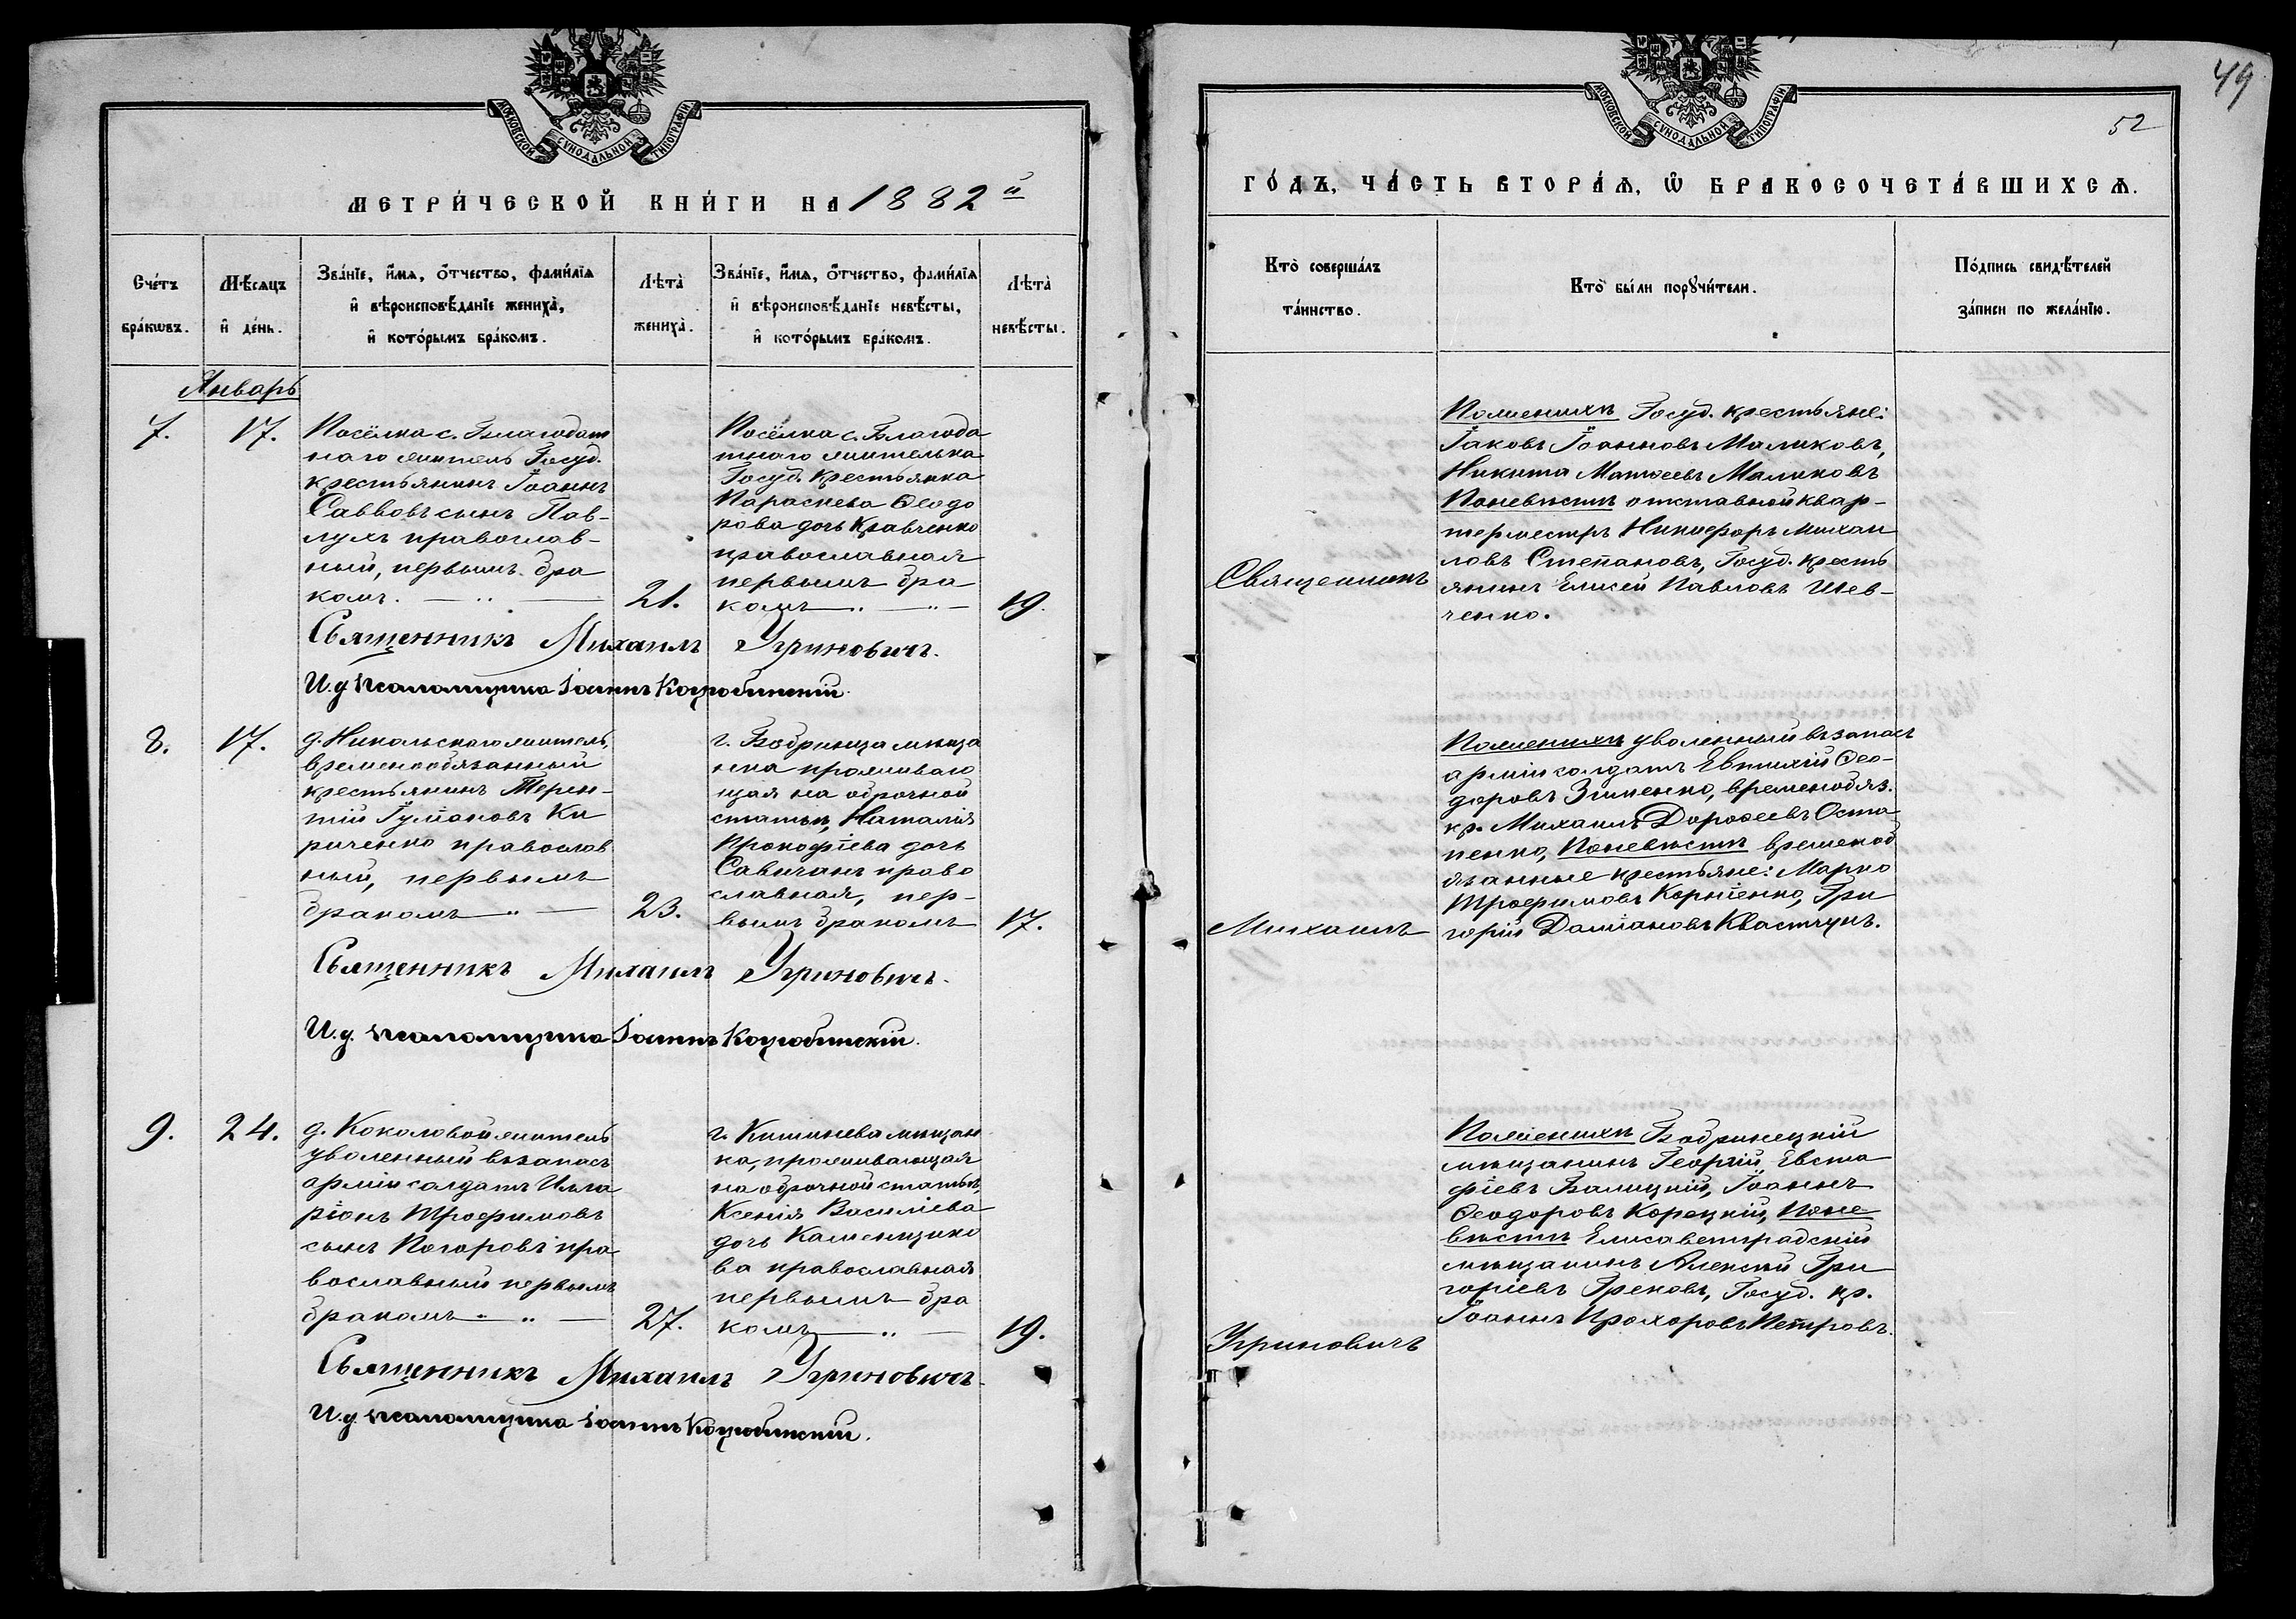 МОСКОВСКОЙ СѴНОДАЛЬНОЙ ТИПОГРАФІИ
МЕТРИ́ЧЕСКОЙ КНИ́ГИ НА 1882й
Сче́тъ бра́кѡвъ.
Мѣ́сяцъ и҆ де́нь.
Зва́нїе, и҆́мѧ, ѻ҆́тчество, фами́лїѧ
и҆ вѣроисповѣ́данїе жениха̀,
и҆ кото́рымъ бра́комъ.
Лѣта̀
жениха̀.
Зва́нїе, и҆́мѧ, ѻ҆́тчество, фами́лїѧ
и҆ вѣроисповѣ́данїе невѣ́сты,
и҆ кото́рымъ бра́комъ.
Лѣта̀
невѣ́сты.
Январь
7.
17.
Посёлка с. Благодат
наго житель Госуд.
крестьянинъ Іоаннъ
Саввовъ сынъ Пав-
лухъ православ-
ный, первымъ бра
комъ.
21.
Посёлка с. Благода
тнаго жителька
Госуд. крестьянка
Параскева Ѳеодо
рова дочь Кравченко
православная
первымъ бра-
комъ
19.
Священникъ Михаилъ Угриновичъ.
И.д. псаломщика Іоаннъ Коцюбинскій.
8.
17.
д. Никольскаго житель,
временообязанный
крестьянинъ Терен-
тій Іуліановъ Ки
риченко православ
ный, первымъ
бракомъ
23.
г. Бобринца мѣща
нка проживаю
щая на оброчной
статьи, Наталія
Прокофіева дочь
Савичанъ право
славная, пер-
вымъ бракомъ
17.
Священникъ Михаилъ Угриновичъ.
И.д. псаломщика Іоаннъ Коцюбинскій.
9.
24.
д. Коколовой житель
уволенный въ запасъ
арміи солдатъ Илла
ріонъ Трофимовъ
сынъ Погоровъ пра
вославный первымъ
бракомъ
27.
г. Кишинева мѣщан
ка, проживающая
на оброчной статьѣ,
Ксенія Василіева
дочь Каменщико
ва православная
первымъ бра
комъ
19.
Священникъ Михаилъ Угриновичъ.
И.д. псаломщика Іоаннъ Коцюбинскій.
49
52
МОСКОВСКОЙ СѴНОДАЛЬНОЙ ТИПОГРАФІИ
ГО́ДЪ, ЧА́СТЬ ВТОРА́Ѧ, Ѽ БРАКОСОЧЕТА́ВШИХСѦ.
Кто̀ соверша́лъ
та́инство.
Кто̀ бы́ли порꙋчи́тели.
По́дпись свидѣ́телей
за́писи по жела́нїю.
Священникъ
По женихѣ Госуд. крестьяне:
Іаковъ Іоанновъ Маликовъ,
Никита Матѳеевъ Маликовъ
По невѣстѣ отставной квар-
термистръ Никифоръ Михаи
ловъ Степановъ, Госуд. кресть
янинъ Елисей Павловъ Шев-
ченко.
Михаилъ
По женихѣ уволенный въ запасъ
арміи солдатъ Евтихій Ѳео-
доровъ Зименко, временобяз.
кр. Михаилъ Дороѳеевъ Оста-
пенко, По невѣстѣ временоб
язанные крестьяне: Марко
Трофимовъ Корніенко, Гри
горій Даміановъ Квастунъ.
Угриновичъ
По женихѣ Бобринецкій
мѣщанинъ Георгій Евста
фіевъ Балицкій, Іоаннъ
Ѳеодоровъ Корецкій, По не
вѣстѣ Елисаветградскій
мѣщанинъ Алексій Гри
горіевъ Грековъ, Госуд. кр.
Іоаннъ Прохоровъ Петровъ.